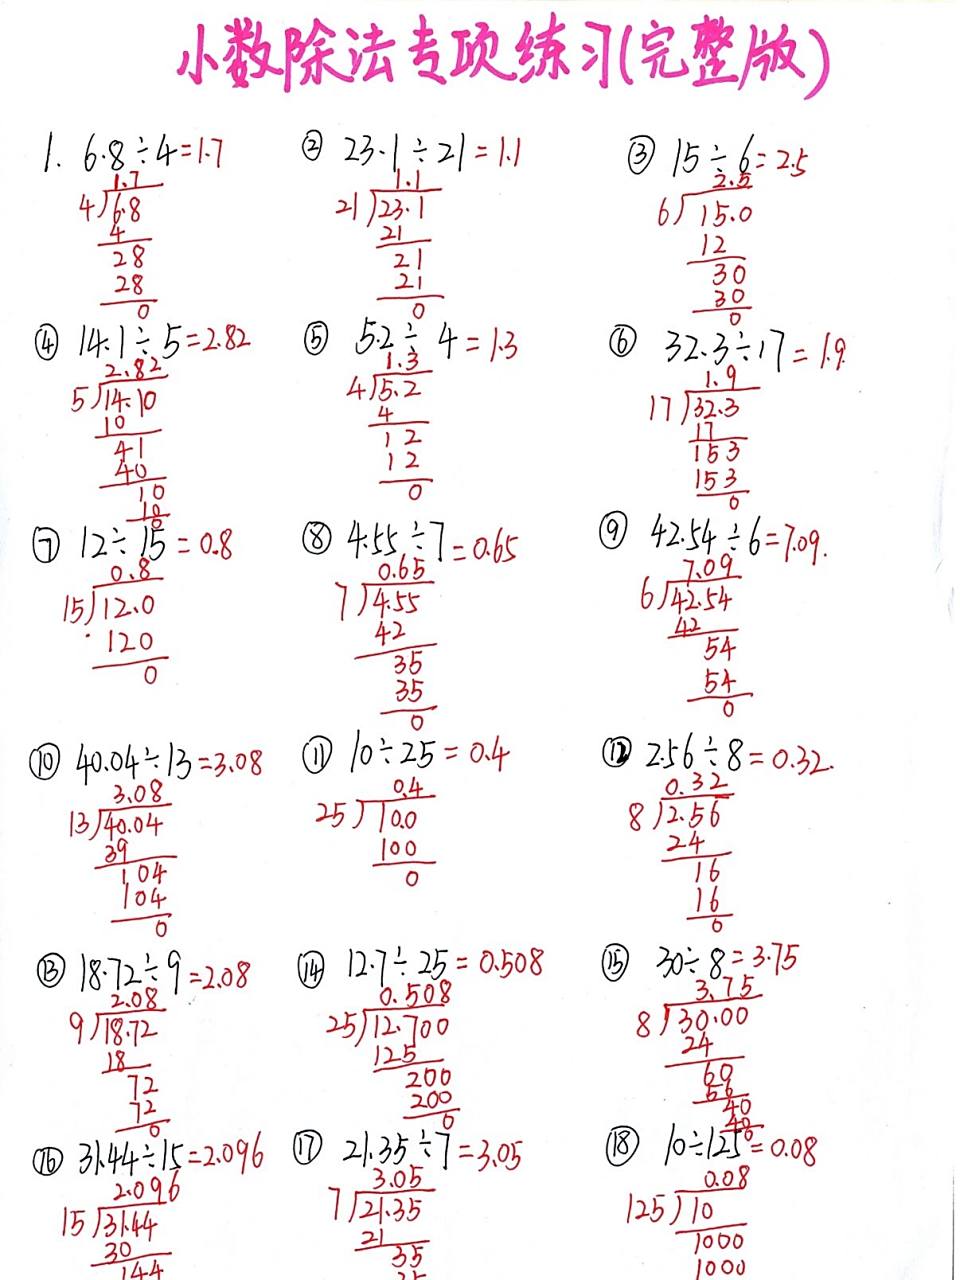 小数除法专项练习(完整版)
1. 6.8÷4=1.7
1.7
4)6.8
4
28
28
0
② 23.1÷21=1.1
1.1
21)23.1
21
21
21
0
③ 15÷6=2.5
2.5
6)15.0
12
30
30
0
④ 14.1÷5=2.82
2.82
5)14.10
10
41
40
10
10
0
⑤ 5.2÷4=1.3
1.3
4)5.2
4
12
12
0
⑥ 32.3÷17=1.9.
1.9
17)32.3
17
153
153
0
⑦ 12÷15=0.8
0.8
15)12.0
120
0
⑧ 4.55÷7=0.65
0.65
7)4.55
42
35
35
0
⑨ 42.54÷6=7.09.
7.09
6)42.54
42
54
54
0
⑩ 40.04÷13=3.08
3.08
13)40.04
39
104
104
0
⑪ 10÷25=0.4
0.4
25)10.0
100
0
⑫ 2.56÷8=0.32.
0.32
8)2.56
24
16
16
0
⑬ 18.72÷9=2.08
2.08
9)18.72
18
72
72
0
⑭ 12.7÷25=0.508
0.508
25)12.700
125
200
200
0
⑮ 30÷8=3.75
3.75
8)30.00
24
60
56
40
40
0
⑯ 31.44÷15=2.096
2.096
15)31.44
30
144
⑰ 21.35÷7=3.05
3.05
7)21.35
21
35
35
⑱ 10÷125=0.08
0.08
125)10
1000
1000